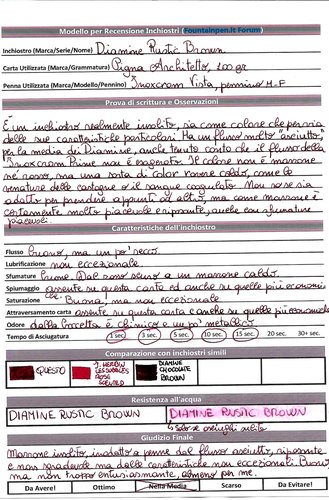 Modello per Recensione Inchiostri (Fountainpen.it Forum)
Inchiostro (Marca/Serie/Nome) Diamine Rustic Brown
Carta Utilizzata (Marca/Grammatura) Pigna Architetto, 200 gr
Penna Utilizzata (Marca/Modello/Pennino) Inoxcrom Vista, pennino M-F
Prova di scrittura e Osservazioni
È un inchiostro realmente insolito, sia come colore che per via
delle sue caratteristiche particolari. Ha un flusso molto "asciutto",
per la media dei Diamine, anche tenuto conto che il flusso della
Inoxcrom Prime non è esagerato. Il colore non è marrone
nè rosso, ma una sorta di color rovere caldo, come le
venature delle castagne o il sangue coagulato. Non so se sia
adatto per prendere appunti od altro, ma come marrone è
certamente molto piacevole e riposante, anche con sfumature
piacevoli.
Caratteristiche dell'inchiostro
Flusso buono, ma un po' secco
Lubrificazione non eccezionale
Sfumature buone. Dal rosso scuro a un marrone caldo.
Spiumaggio assente su questa carta ed anche su quelle più economiche
Saturazione Buona, ma non eccezionale
Attraversamento carta assente su questa carta e anche su quelle più economiche
Odore dalla boccetta è chimico e un po' metallico
Tempo di Asciugatura 1 sec. 3 sec. 5 sec. 10 sec. 15 sec. 20 sec. 30+ sec.
Comparazione con inchiostri simili
QUESTO
J. HERBIN
DIAMINE
CHOCOLATE
BROWN
Resistenza all'acqua
DIAMINE RUSTIC BROWN DIAMINE RUSTIC BROWN
Giudizio Finale
Marrone insolito, inadatto a penne dal flusso asciutto, riposante
e non sgradevole ma dalle caratteristiche non eccezionali. Buono
ma non troppo entusiasmante, almeno per me.
Da Avere! Ottimo Nella Media Scarso Da Evitare!